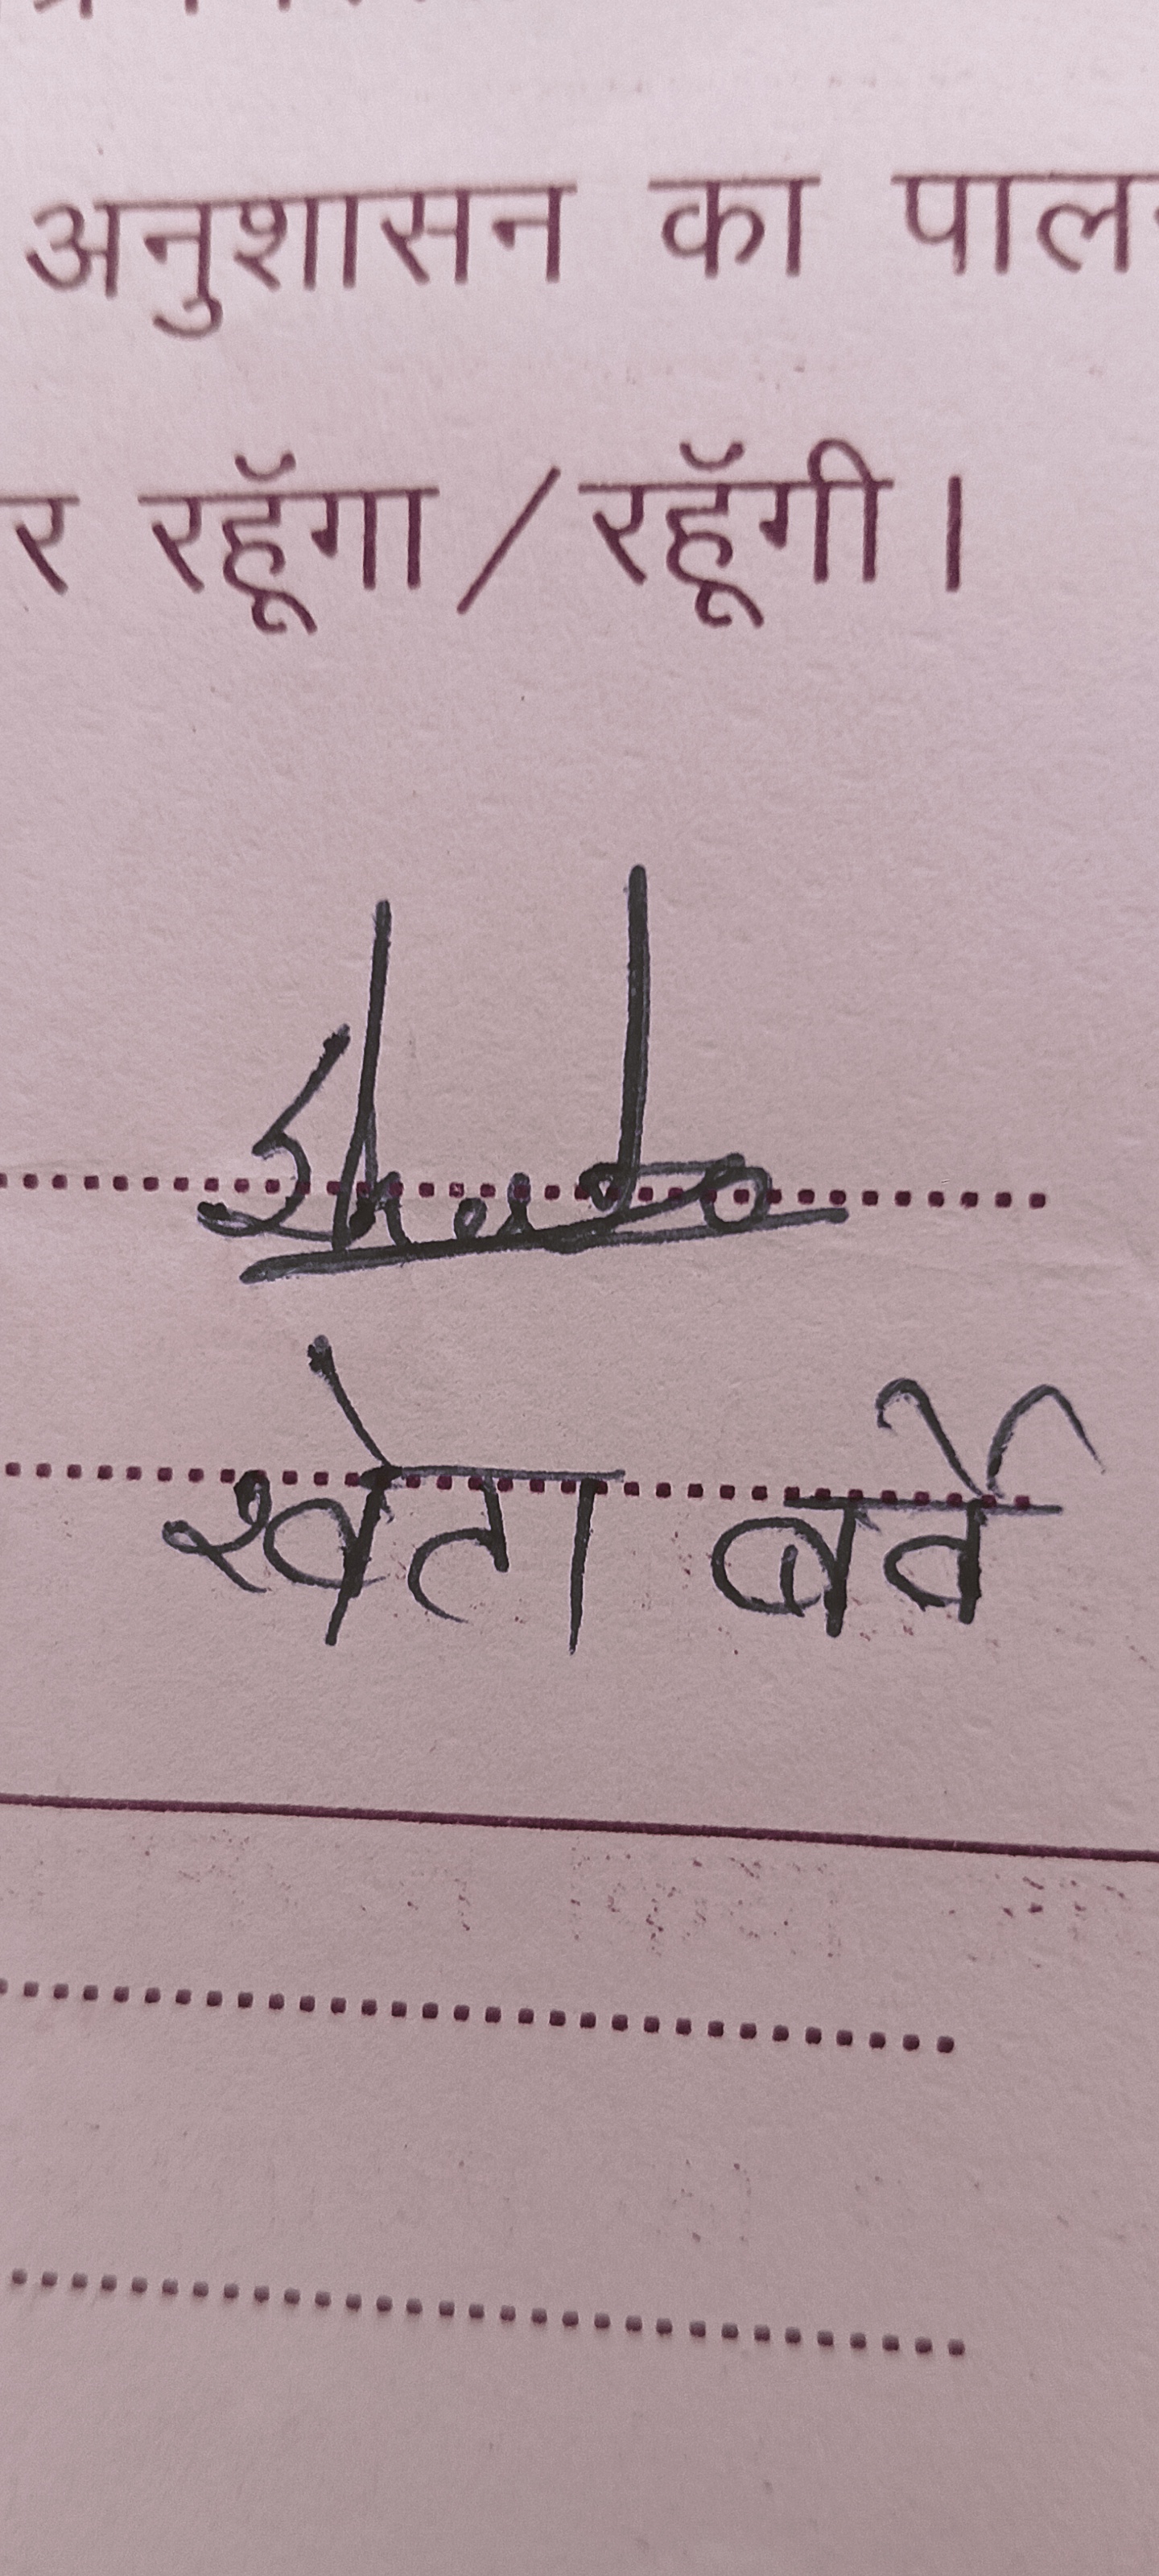 अनुशासन का पाल
र रहूँगा / रहूँगी ।
श्वेता बर्वे